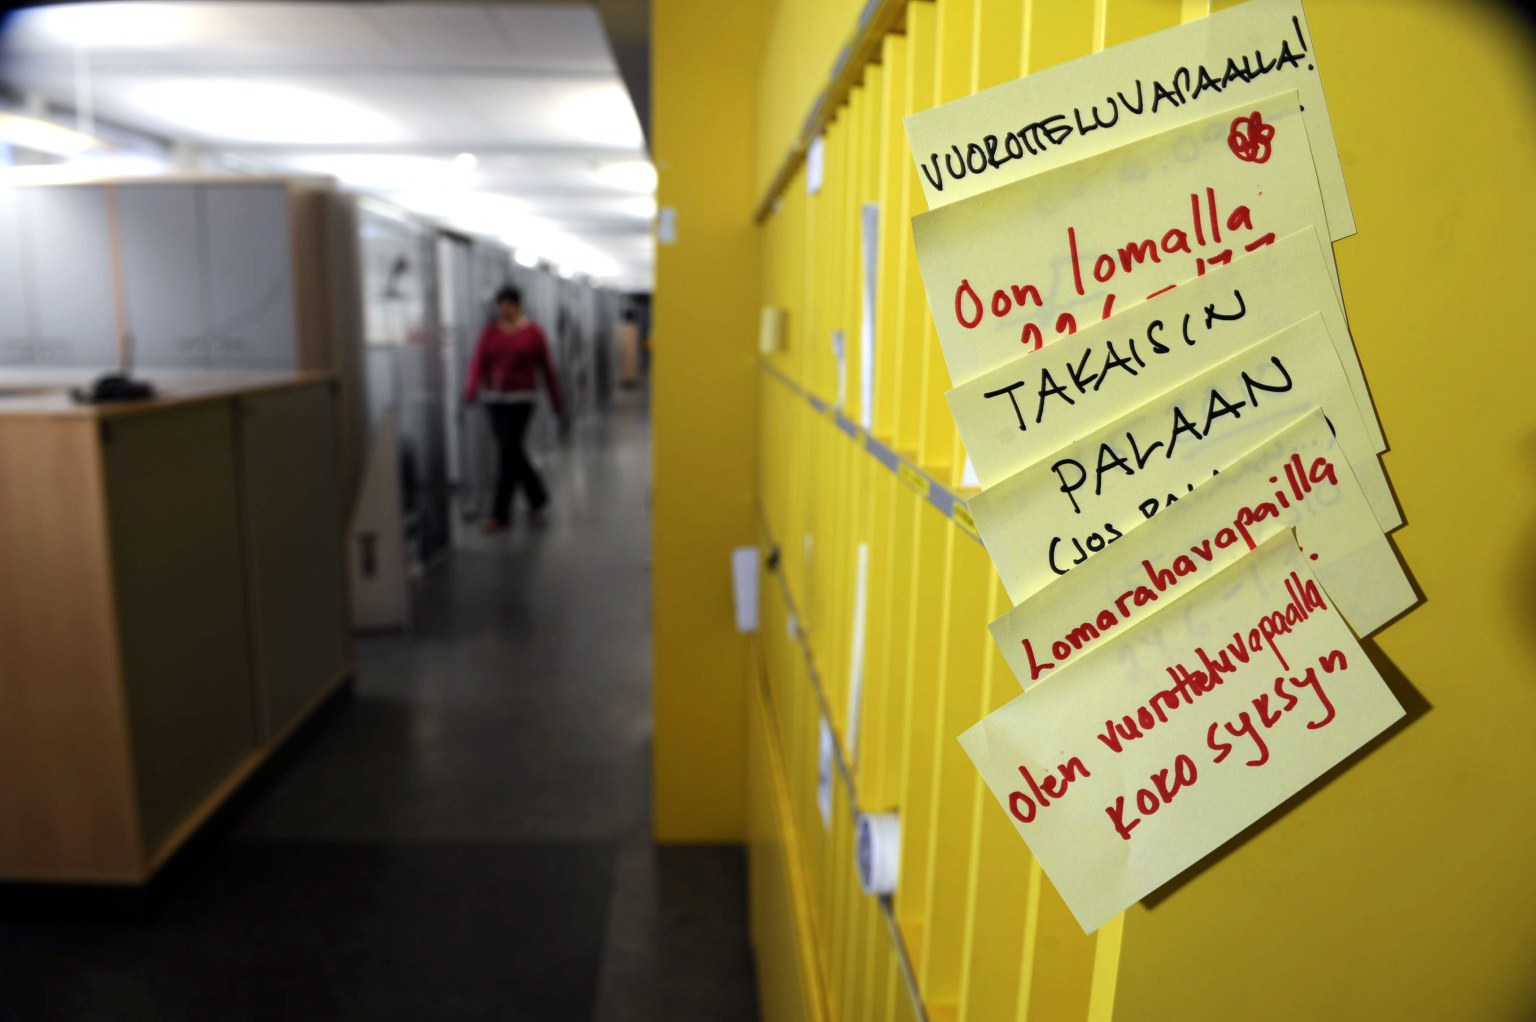 VUOROTTELUVAPAALLA!
Oon lomalla
TAKAISIN
PALAAN
(JOS
Lomarahavapailla
Olen vuorotteluvapaalla
KOKO syksyn